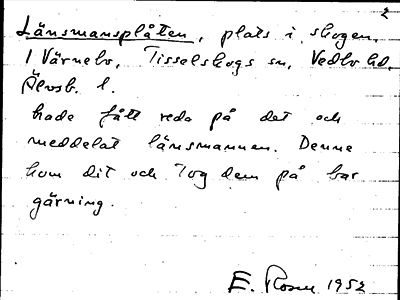 2
Länsmansplåten, plats i skogen,
I Värnebo, Tisselskogs sn, Vedbo hd,
Älvsb. l.
hade fått reda på det och
meddelat länsmannen. Denne
kom dit och tog dem på bar
gärning.
E. Rosen 1952